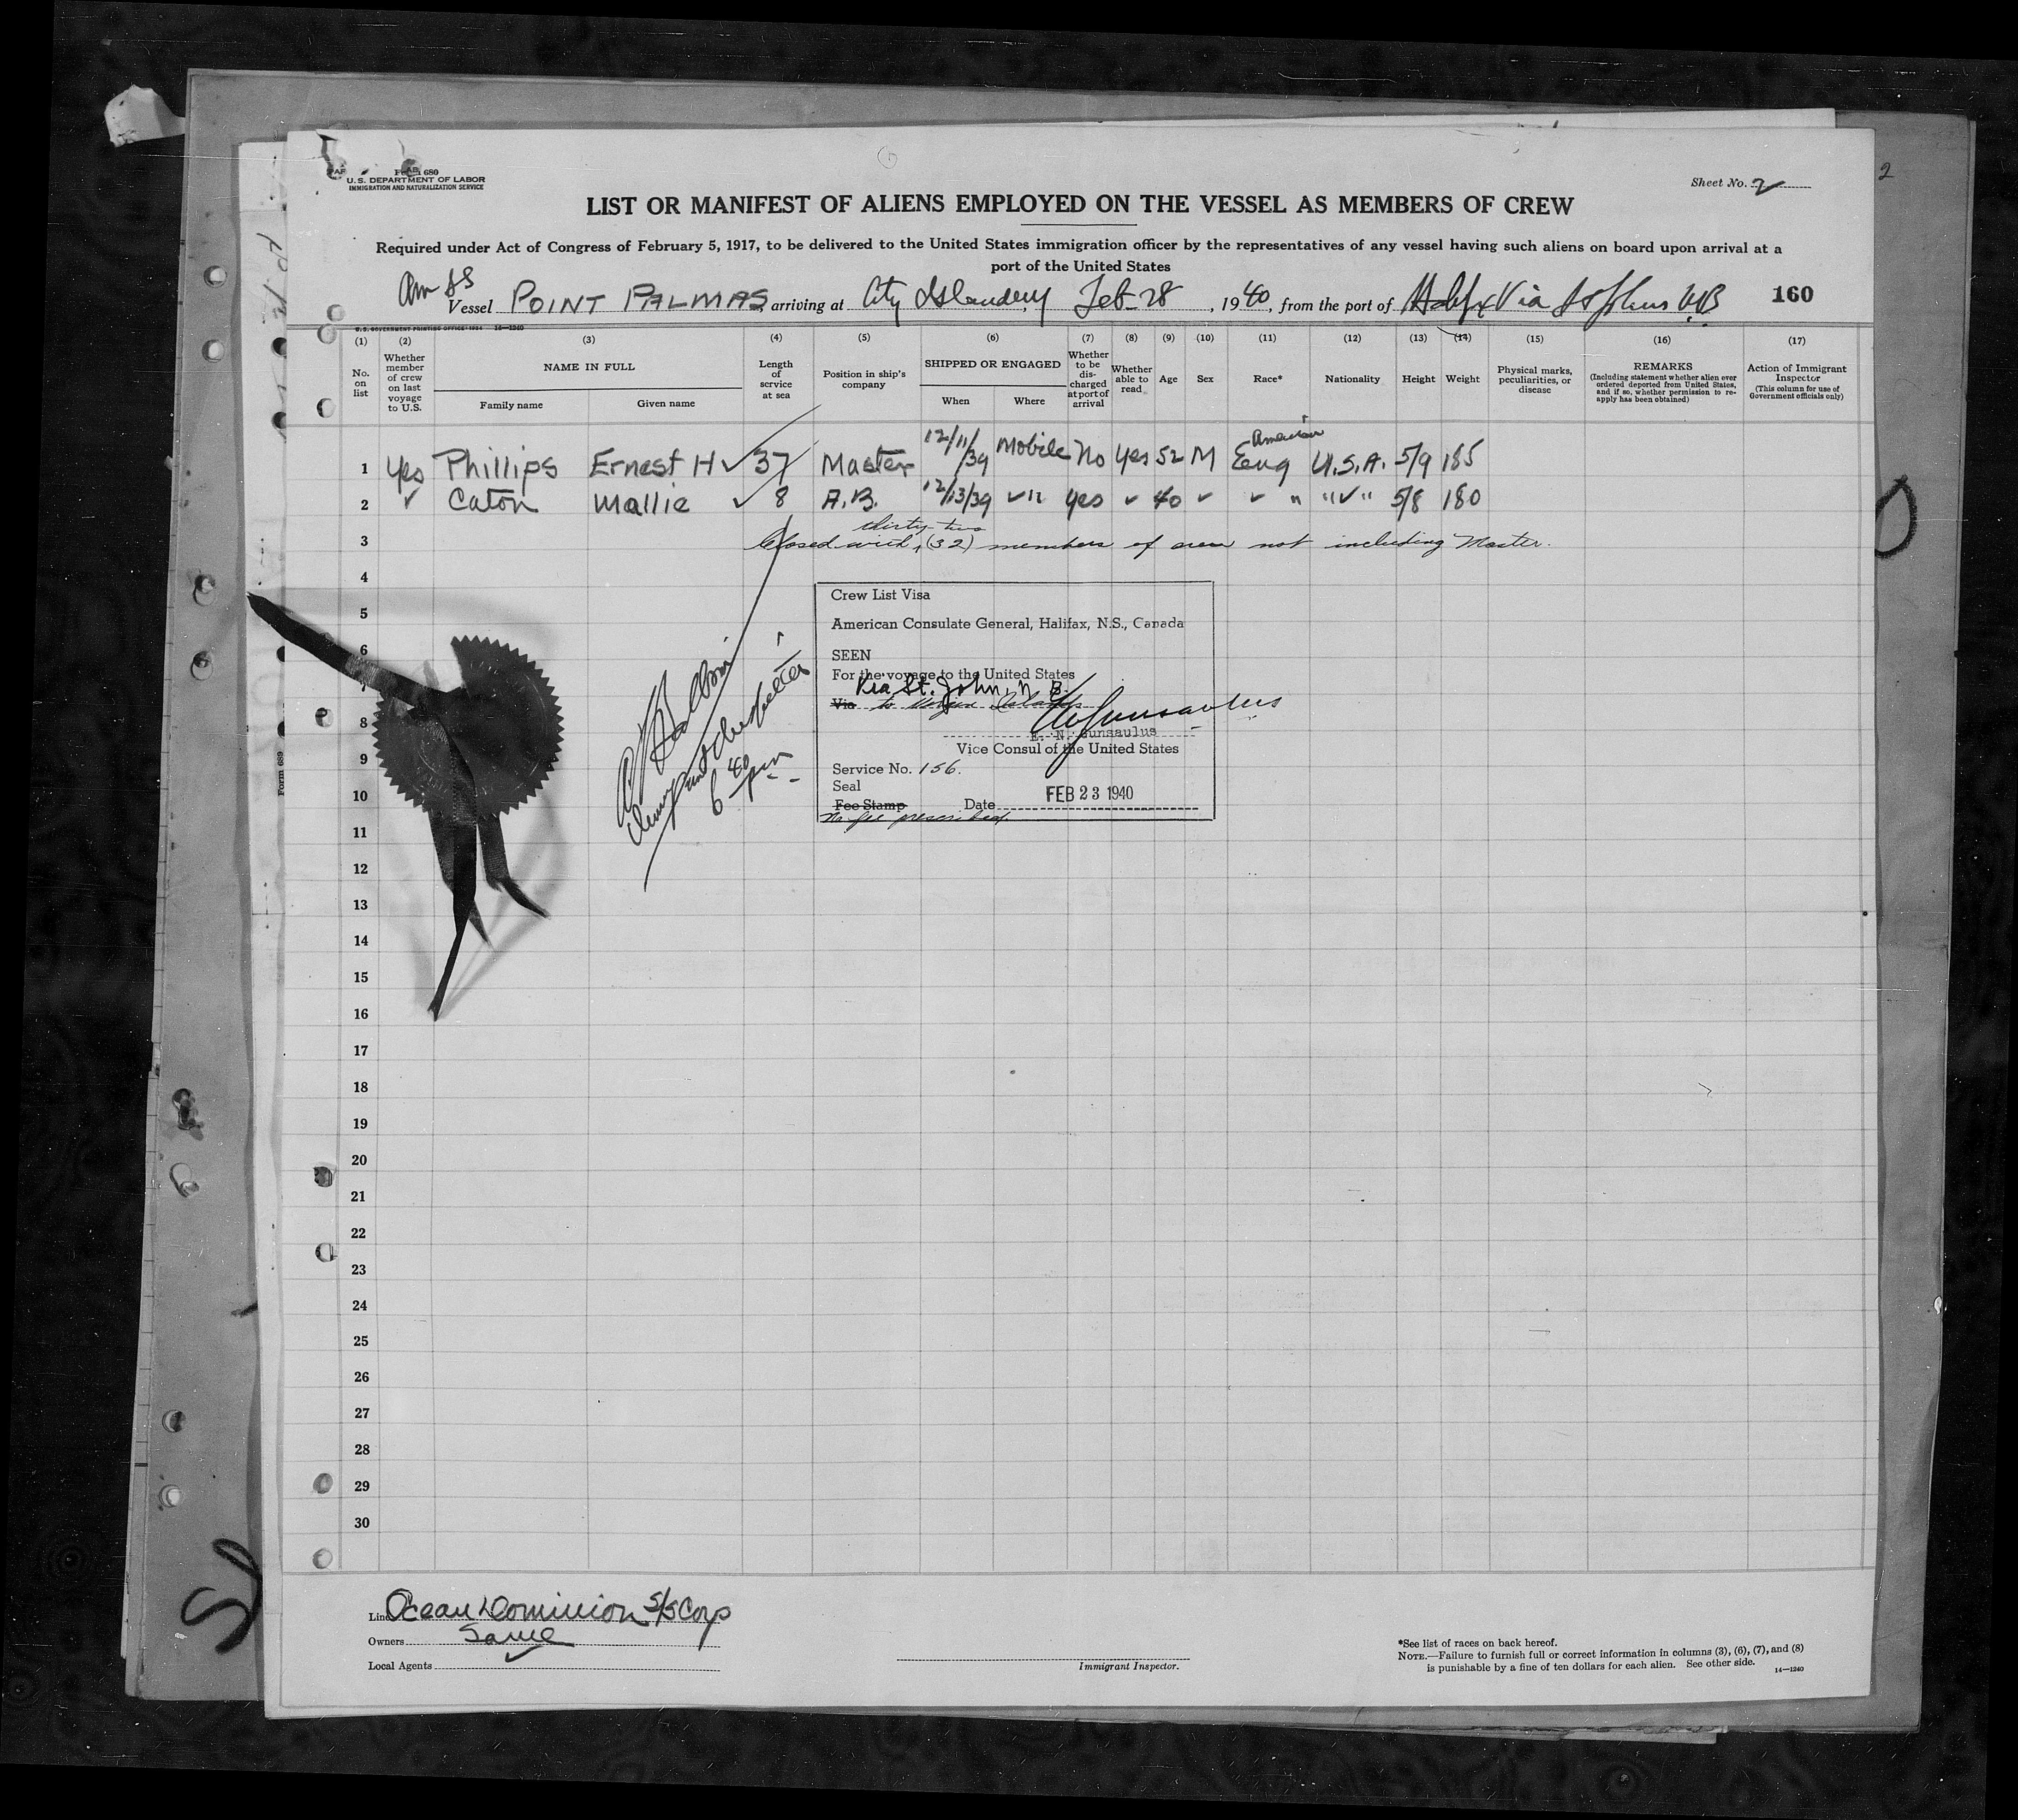 Form 680
U.S. DEPARTMENT OF LABOR
IMMIGRATION AND NATURALIZATION SERVICE
Sheet No. 2
2
LIST OR MANIFEST OF ALIENS EMPLOYED ON THE VESSEL AS MEMBERS OF CREW
Required under Act of Congress of February 5, 1917, to be delivered to the United States immigration officer by the representatives of any vessel having such aliens on board upon arrival at a
port of the United States
Am SS
Vessel POINT PALMAS, arriving at City Island NY Feb 28, 1940, from the port of Halifax Via St Johns N.B 160
U.S. GOVERNMENT PRINTING OFFICE 14—1240
(1) (2) (3) (4) (5) (6) (7) (8) (9) (10) (11) (12) (13) (14) (15) (16) (17)
No. on list
Whether member of crew on last voyage to U.S.
NAME IN FULL
Family name Given name
Length of service at sea
Position in ship's company
SHIPPED OR ENGAGED
When Where
Whether to be discharged at port of arrival
Whether able to read
Age
Sex
Race*
Nationality
Height
Weight
Physical marks, peculiarities, or disease
REMARKS
(Including statement whether alien ever ordered deported from United States, and if so, whether permission to reapply has been obtained)
Action of Immigrant Inspector
(This column for use of Government officials only)
American
1 Yes Phillips Ernest H ✓ 37 Master 12/11/39 Mobile No Yes 52 M Eng U.S.A. 5/9 185
2 ✓ Caton Mallie ✓ 8 A.B. 12/13/39 ✓ " Yes ✓ 40 ✓ ✓ " " ✓ " 5/8 180
thirty-two
3 Closed with (32) members of crew not including Master.
4
5
6
7
8
9
10
11
12
13
14
15
16
17
18
19
20
21
22
23
24
25
26
27
28
29
30
Crew List Visa
American Consulate General, Halifax, N.S., Canada
SEEN
For the voyage to the United States
Via St. John, N.B.
Via
E. N. Gunsaulus
Vice Consul of the United States
Service No. 156.
Seal
Fee Stamp Date FEB 23 1940
No fee prescribed.
6 40 pm
Form 689
Line Ocean Dominion S/S Corp
Owners Same
Local Agents
Immigrant Inspector.
*See list of races on back hereof.
NOTE.—Failure to furnish full or correct information in columns (3), (6), (7), and (8)
is punishable by a fine of ten dollars for each alien. See other side. 14—1240